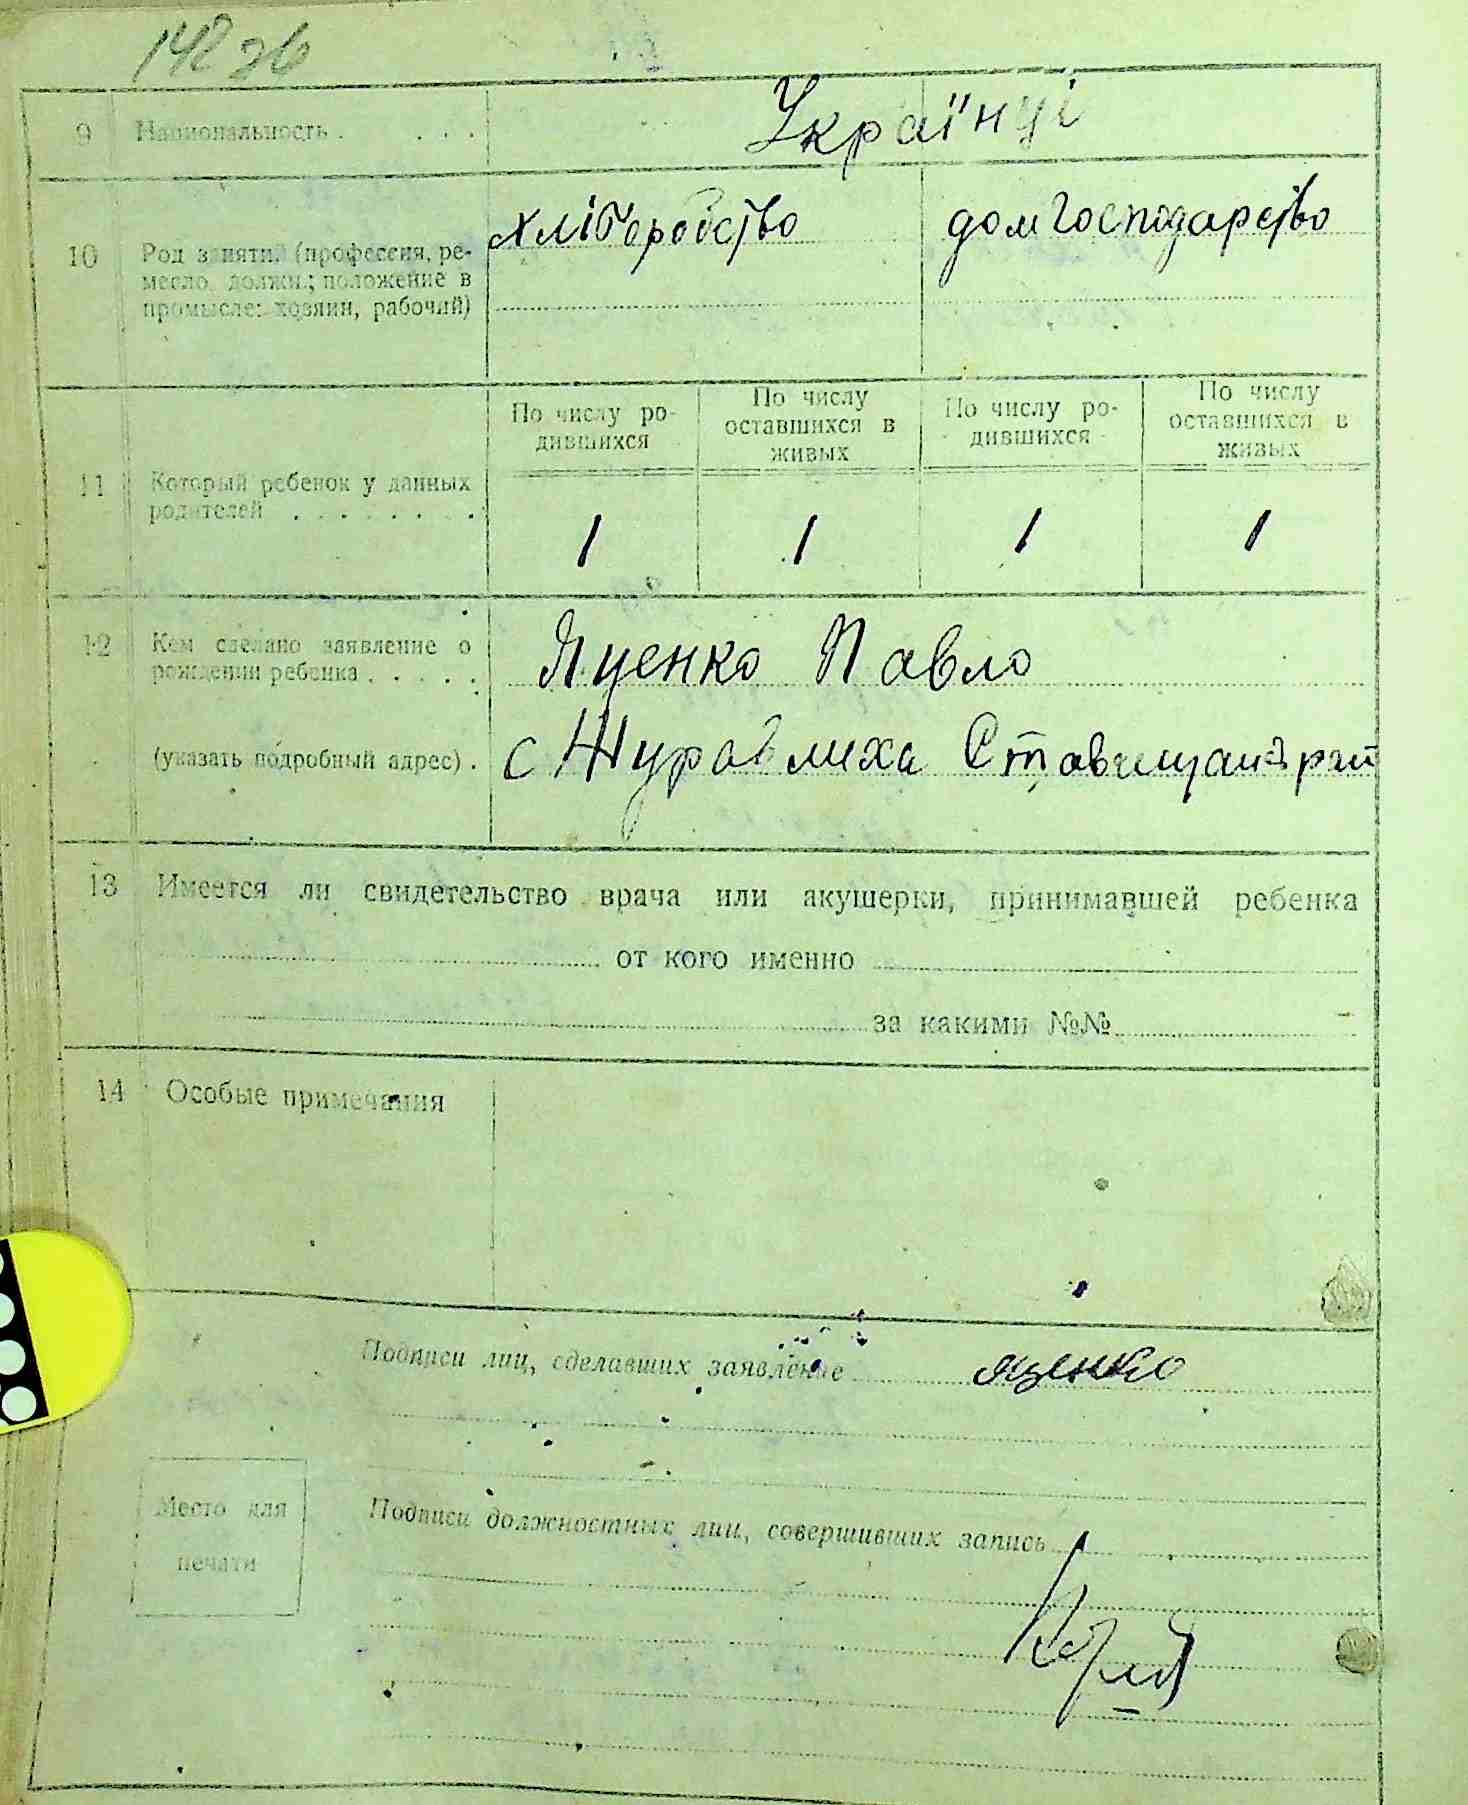 142 зв
9 Национальность . . . . Українці
10 Род занятий (профессия, ре-
месло, должн.; положение в
промысле: хозяин, рабочий)
хліборобство домгосподарство
11 Который ребенок у данных
родителей . . . . . . . .
По числу ро-
дившихся
По числу
оставшихся в
живых
По числу ро-
дившихся
По числу
оставшихся в
живых
1 1 1 1
12 Кем сделано заявление о
рождении ребенка . . . . . Яценко Павло
(указать подробный адрес) . с Журавлиха Ставищан рай
13 Имеется ли свидетельство врача или акушерки, принимавшей ребенка
от кого именно
за какими №№
14 Особые примечания
Подписи лиц, сделавших заявление яценко
Место для
печати
Подписи должностных лиц, совершивших запись